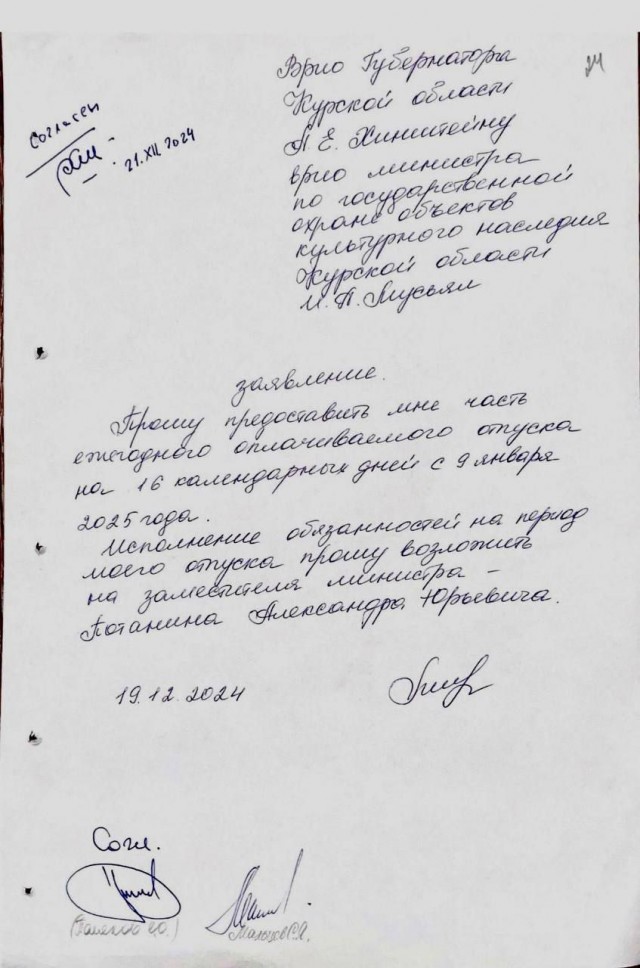 24
Врио Губернатора
Курской области
А.Е. Хинштейну
врио министра
по государственной
охране объектов
культурного наследия
Курской области
И.П. Мусьял
Согласен
21.XII.2024
заявление.
Прошу предоставить мне часть
ежегодного оплачиваемого отпуска
на 16 календарных дней с 9 января
2025 года.
Исполнение обязанностей на период
моего отпуска прошу возложить
на заместителя министра –
Потанина Александра Юрьевича.
19.12.2024
Согл.